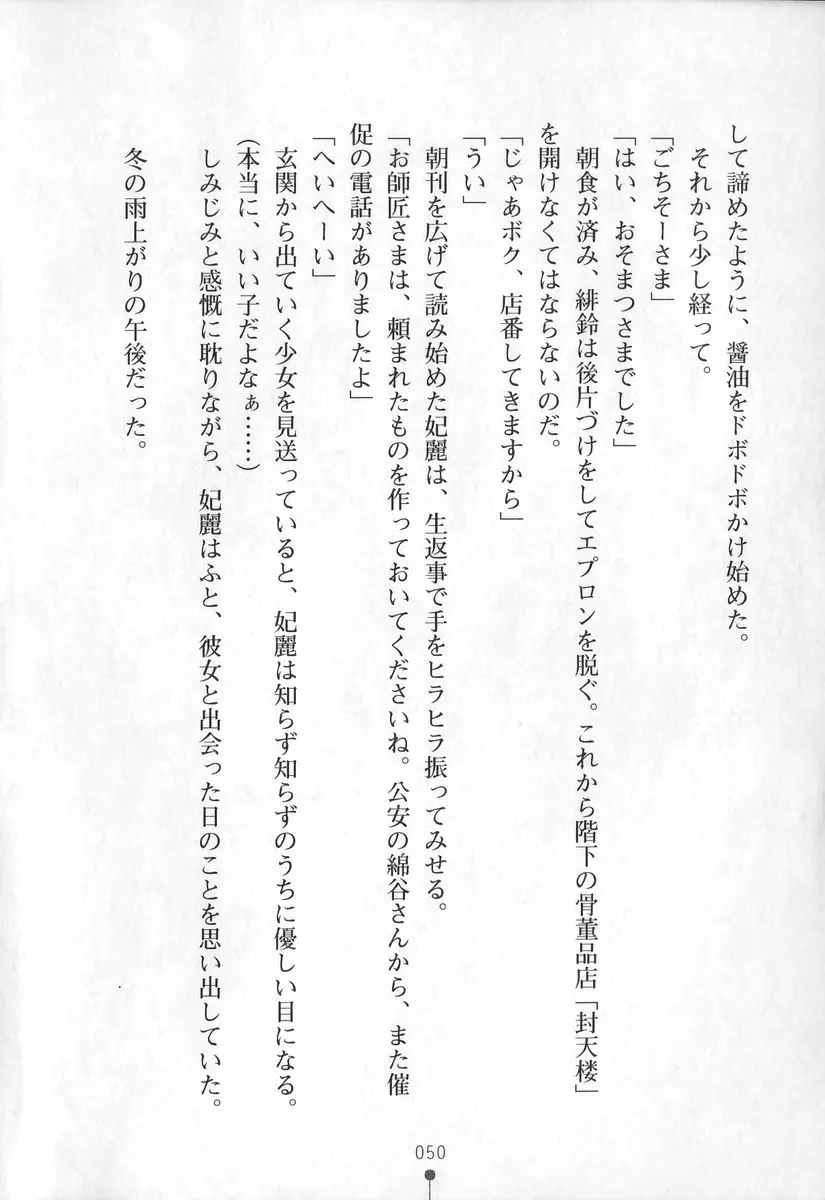 して諦めたように、醤油をドボドボかけ始めた。
それから少し経って。
「ごちそーさま」
「はい、おそまつさまでした」
朝食が済み、緋鈴は後片づけをしてエプロンを脱ぐ。これから階下の骨董品店「封天楼」
を開けなくてはならないのだ。
「じゃあボク、店番してきますから」
「うい」
朝刊を広げて読み始めた妃麗は、生返事で手をヒラヒラ振ってみせる。
「お師匠さまは、頼まれたものを作っておいてくださいね。公安の綿谷さんから、また催
促の電話がありましたよ」
「へいへーい」
玄関から出ていく少女を見送っていると、妃麗は知らず知らずのうちに優しい目になる。
(本当に、いい子だよなぁ……)
しみじみと感慨に耽りながら、妃麗はふと、彼女と出会った日のことを思い出していた。
冬の雨上がりの午後だった。
050